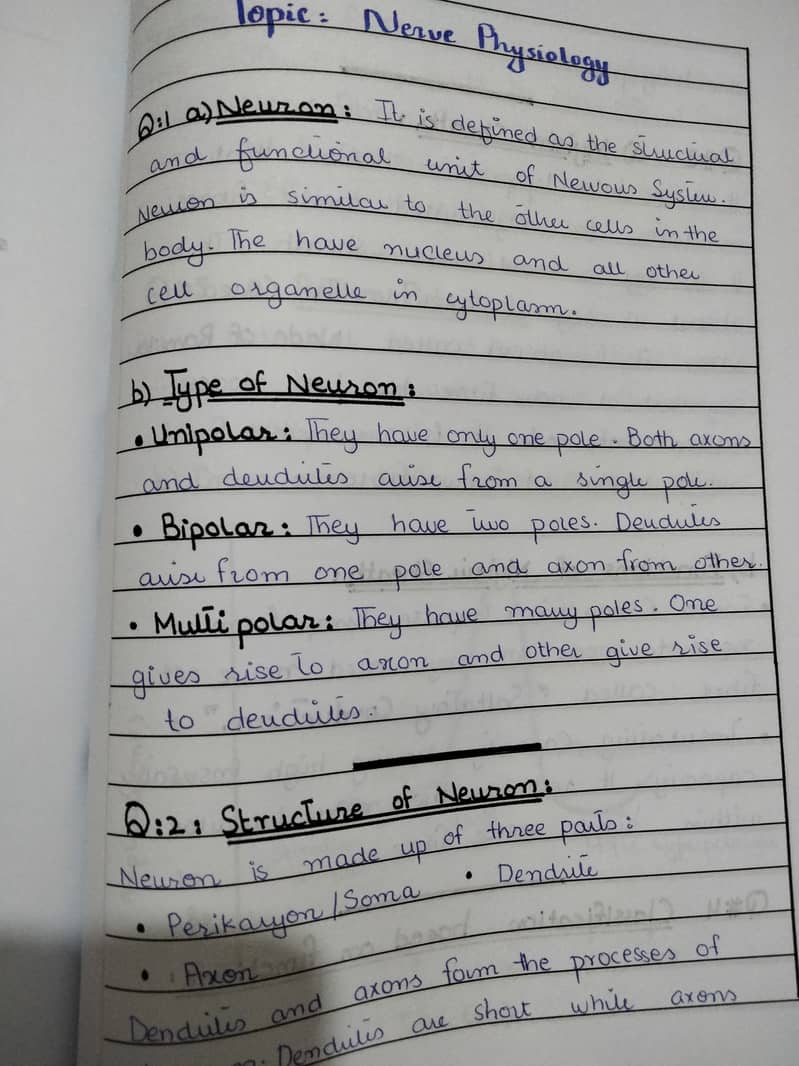 Topic: Nerve Physiology
Q:1 a) Neuron: It is defined as the structural
and functional unit of Nervous System.
Neuron is similar to the other cells in the
body. The have nucleus and all other
cell organelle in cytoplasm.
b) Type of Neuron:
• Unipolar: They have only one pole. Both axons
and dendrites arise from a single pole.
• Bipolar: They have two poles. Dendrites
arise from one pole and axon from other.
• Multipolar: They have many poles. One
gives rise to axon and other give rise
to dendrites.
Q:2: Structure of Neuron:
Neuron is made up of three parts:
• Perikaryon/Soma • Dendrite
• Axon
Dendrites and axons form the processes of
Dendrites are short while axons